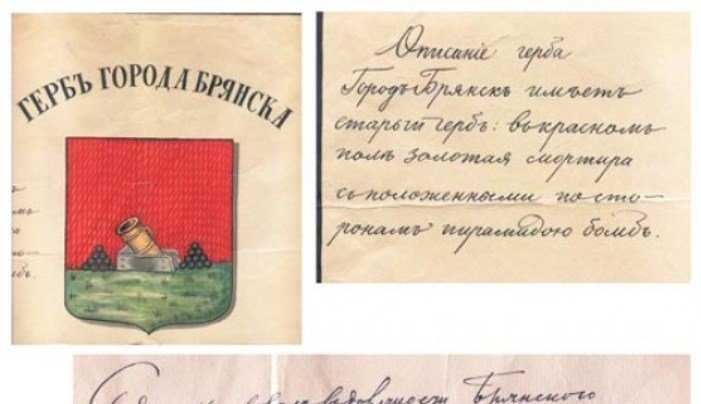 ГЕРБЪ ГОРОДА БРЯНСКА
Описаніе герба
Городъ Брянскъ имѣетъ
старый гербъ: въ красномъ
полѣ золотая мортира
съ положенными по сто-
ронамъ пирамидою бомбъ.
Брянского